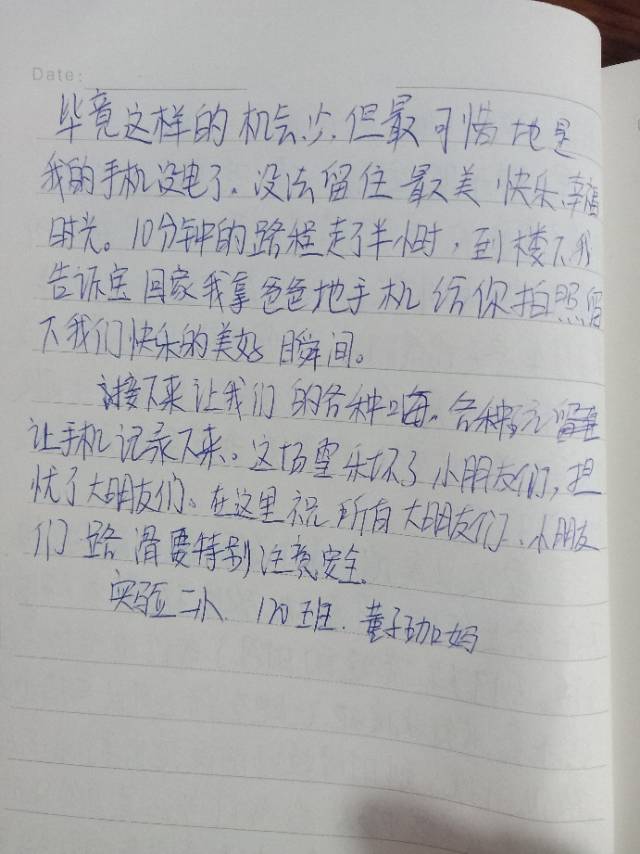 Date:
毕竟这样的机会少,但最可惜地是
我的手机没电了。没法留住最美快乐、幸福
时光。10分钟的路程走了半小时,到楼下我
告诉宝回家我拿爸爸地手机给你拍照留
下我们快乐的美好瞬间。
接下来让我们的各种嗨。各种玩
让手机记录下来。这场雪乐坏了小朋友们,担
忧了大朋友们。在这里祝所有大朋友们、小朋友
们路滑要特别注意安全。
实验二小 170五班. 董子珈妈